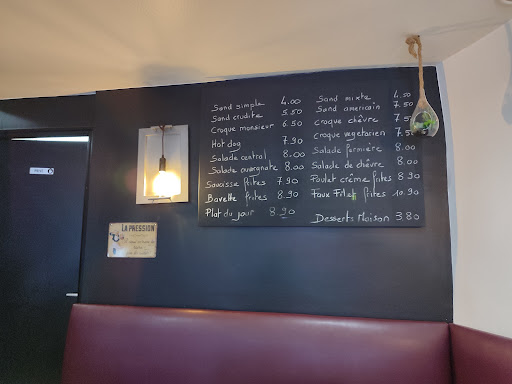 Sand simple 4.00
Sand crudité 5.50
Croque monsieur 6.50
Hot dog 7.90
Salade central 8.00
Salade auvergnate 8.00
Saucisse frites 7.90
Bavette frites 8.90
Plat du jour 8.90
Sand mixte 4.50
Sand americain 7.50
Croque chèvre 7.50
Croque vegetarien 7.5
Salade fermière 8.00
Salade de chèvre 8.00
Poulet crême frites 8.90
Faux Filet frites 10.90
Desserts Maison 3.80
LA PRESSION